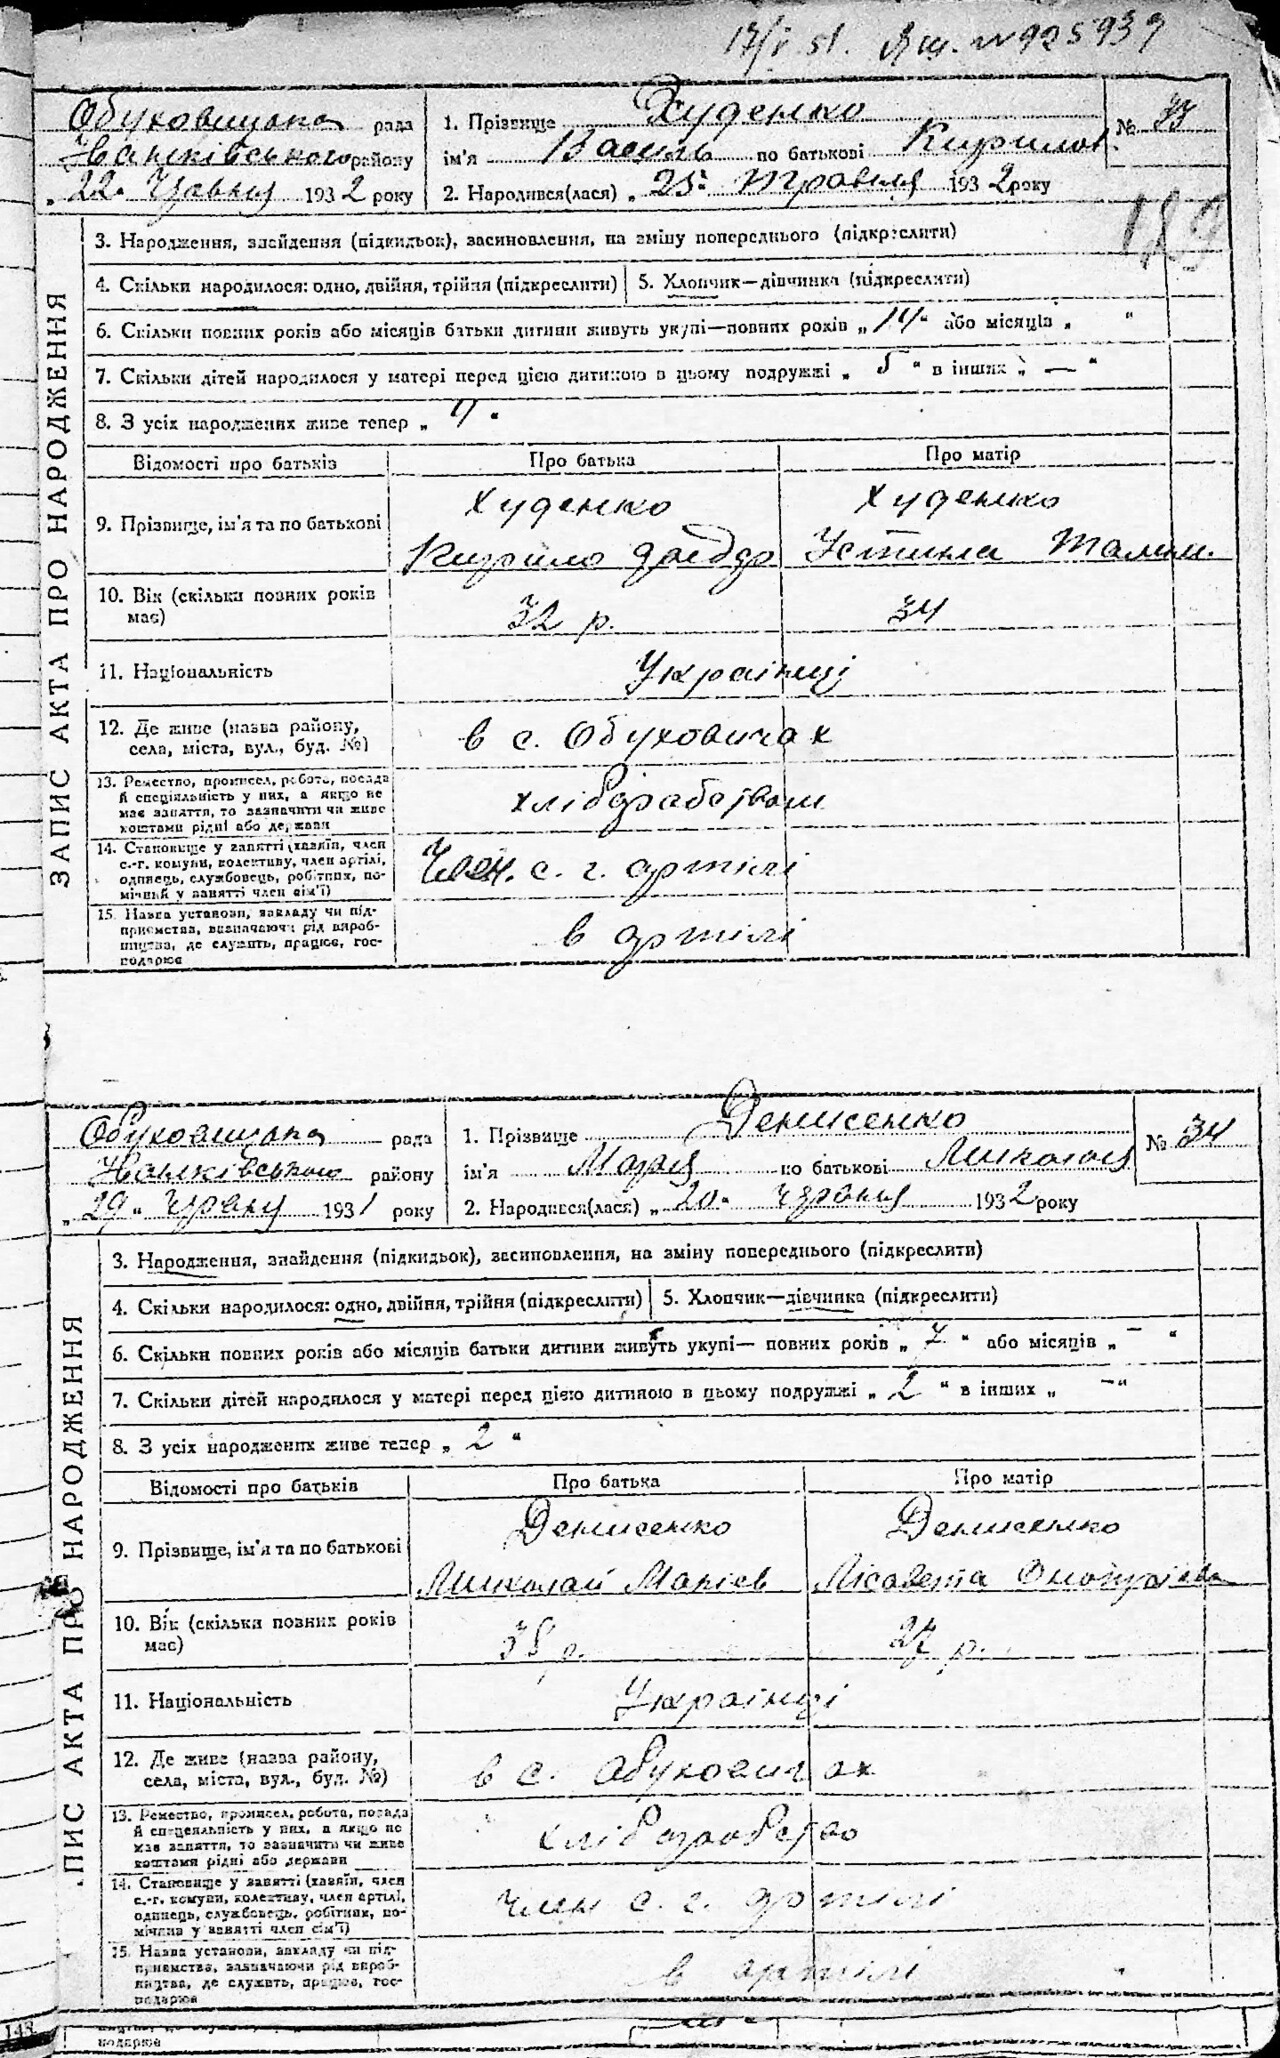 17/V 51. Вщ. № 925939
Обуховицька рада
Іванківського району
„22“ Червня 1932 року
1. Прізвище Худенко
ім'я Василь по батькові Кирилов.
№ 33
2. Народився(лася) „25“ травня 1932 року
189
ЗАПИС АКТА ПРО НАРОДЖЕННЯ
3. Народження, знайдення (підкидьок), засиновлення, на зміну попереднього (підкреслити)
4. Скільки народилося: одно, двійня, трійня (підкреслити)
5. Хлопчик—дівчинка (підкреслити)
6. Скільки повних років або місяців батьки дитини живуть укупі—повних років „14“ або місяців „ “
7. Скільки дітей народилося у матері перед цією дитиною в цьому подружжі „5“ в інших „—“
8. З усіх народжених живе тепер „4“
Відомості про батьків
Про батька
Про матір
9. Прізвище, ім'я та по батькові
Худенко
Кирило
Худенко
Устина
10. Вік (скільки повних років
має)
32 р.
34
11. Національність
Українці
12. Де живе (назва району,
села, міста, вул., буд. №)
в с. Обуховичах
13. Ремество, промисел, робота, посада
й спеціяльність у них, а якщо не
має заняття, то зазначити чи живе
коштами рідні або держави
хліборобством
14. Становище у занятті (хазяїн, член
с.-г. комуни, колективу, член артілі,
одинець, службовець, робітник, по-
мічний у занятті член сім'ї)
Член. с. г. артілі
15. Назва установи, закладу чи під-
приємства, визначаючи рід вироб-
ництва, де служить, працює, гос-
подарює
в артілі
Обуховицька рада
Іванківського району
„29“ Червня 1931 року
1. Прізвище Денисенко
ім'я Марія по батькові Миколаєв
№ 34
2. Народився(лася) „20“ Червня 1932 року
ПИС АКТА ПРО НАРОДЖЕННЯ
3. Народження, знайдення (підкидьок), засиновлення, на зміну попереднього (підкреслити)
4. Скільки народилося: одно, двійня, трійня (підкреслити)
5. Хлопчик—дівчинка (підкреслити)
6. Скільки повних років або місяців батьки дитини живуть укупі— повних років „7“ або місяців „—“
7. Скільки дітей народилося у матері перед цією дитиною в цьому подружжі „2“ в інших „—“
8. З усіх народжених живе тепер „2“
Відомості про батьків
Про батька
Про матір
9. Прізвище, ім'я та по батькові
Денисенко
Миколай
Денисенко
Лісавета
10. Вік (скільки повних років
має)
38 р.
27 р.
11. Національність
Українці
12. Де живе (назва району,
села, міста, вул., буд. №)
в с. Обуховичах
13. Ремество, промисел, робота, посада
й спеціяльність у них, а якщо не
має заняття, то зазначити чи живе
коштами рідні або держави
хліборобство
14. Становище у занятті (хазяїн, член
с.-г. комуни, колективу, член артілі,
одинець, службовець, робітник, по-
мічний у занятті член сім'ї)
Член с. г. артілі
15. Назва установи, закладу чи під-
приємства, зазначаючи рід вироб-
ництва, де служить, працює, гос-
подарює
в артілі
148
подарює